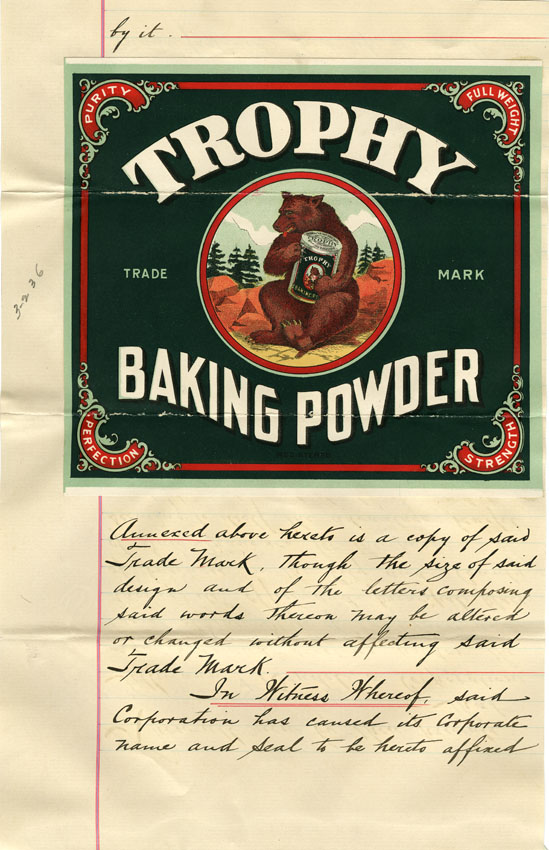 by it.
PURITY
FULL WEIGHT
TROPHY
TROPHY
TROPHY
TRADE MARK
BAKING POWDER
REGISTERED
PERFECTION
STRENGTH
3-236
Annexed above hereto is a copy of said
Trade Mark, though the size of said
design and of the letters composing
said words thereon may be altered
or changed without affecting said
Trade Mark.
In Witness Whereof, said
Corporation has caused its Corporate
name and seal to be hereto affixed